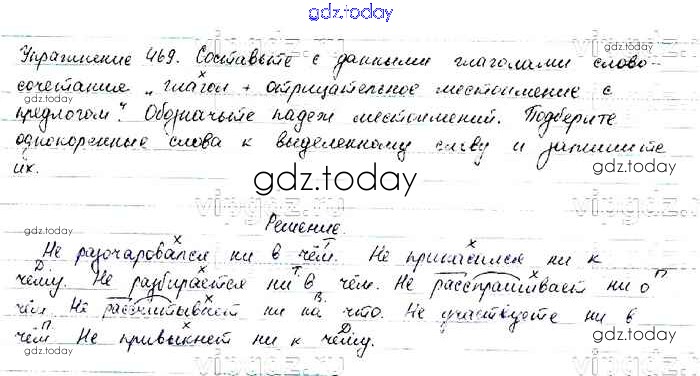 gdz.today
Упражнение 469. Составьте с данными глаголами слово-
сочетания „глагол + отрицательное местоимение с
предлогом". Обозначьте падеж местоимений. Подберите
однокоренные слова к выделенному слову и запишите
их.
gdz.today
Решение
Не разочаровался ни в чём. Не прикасился ни к
чему. Не разбирается ни в чём. Не расспрашивает ни о
чём. Не рассчитывает ни на что. Не участвуете ни в
чём. Не привыкнет ни к чему.
gdz.today